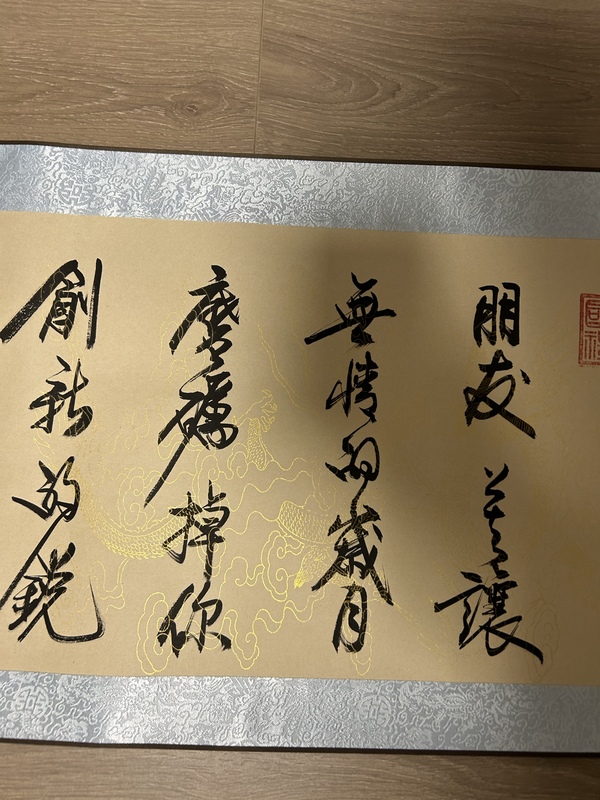 朋友 莫讓
無情的歲月
磨礪掉你
創新的銳